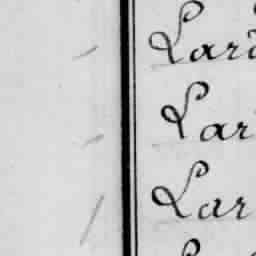 Lard
Lar
Lar